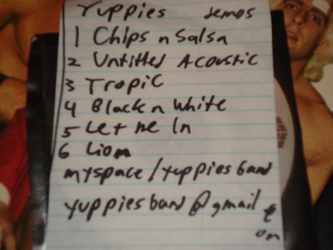 Yuppies demos
1 Chips n Salsa
2 Untitled Acoustic
3 Tropic
4 Black n White
5 Let me In
6 Liom
myspace/yuppiesband
yuppiesband@gmail